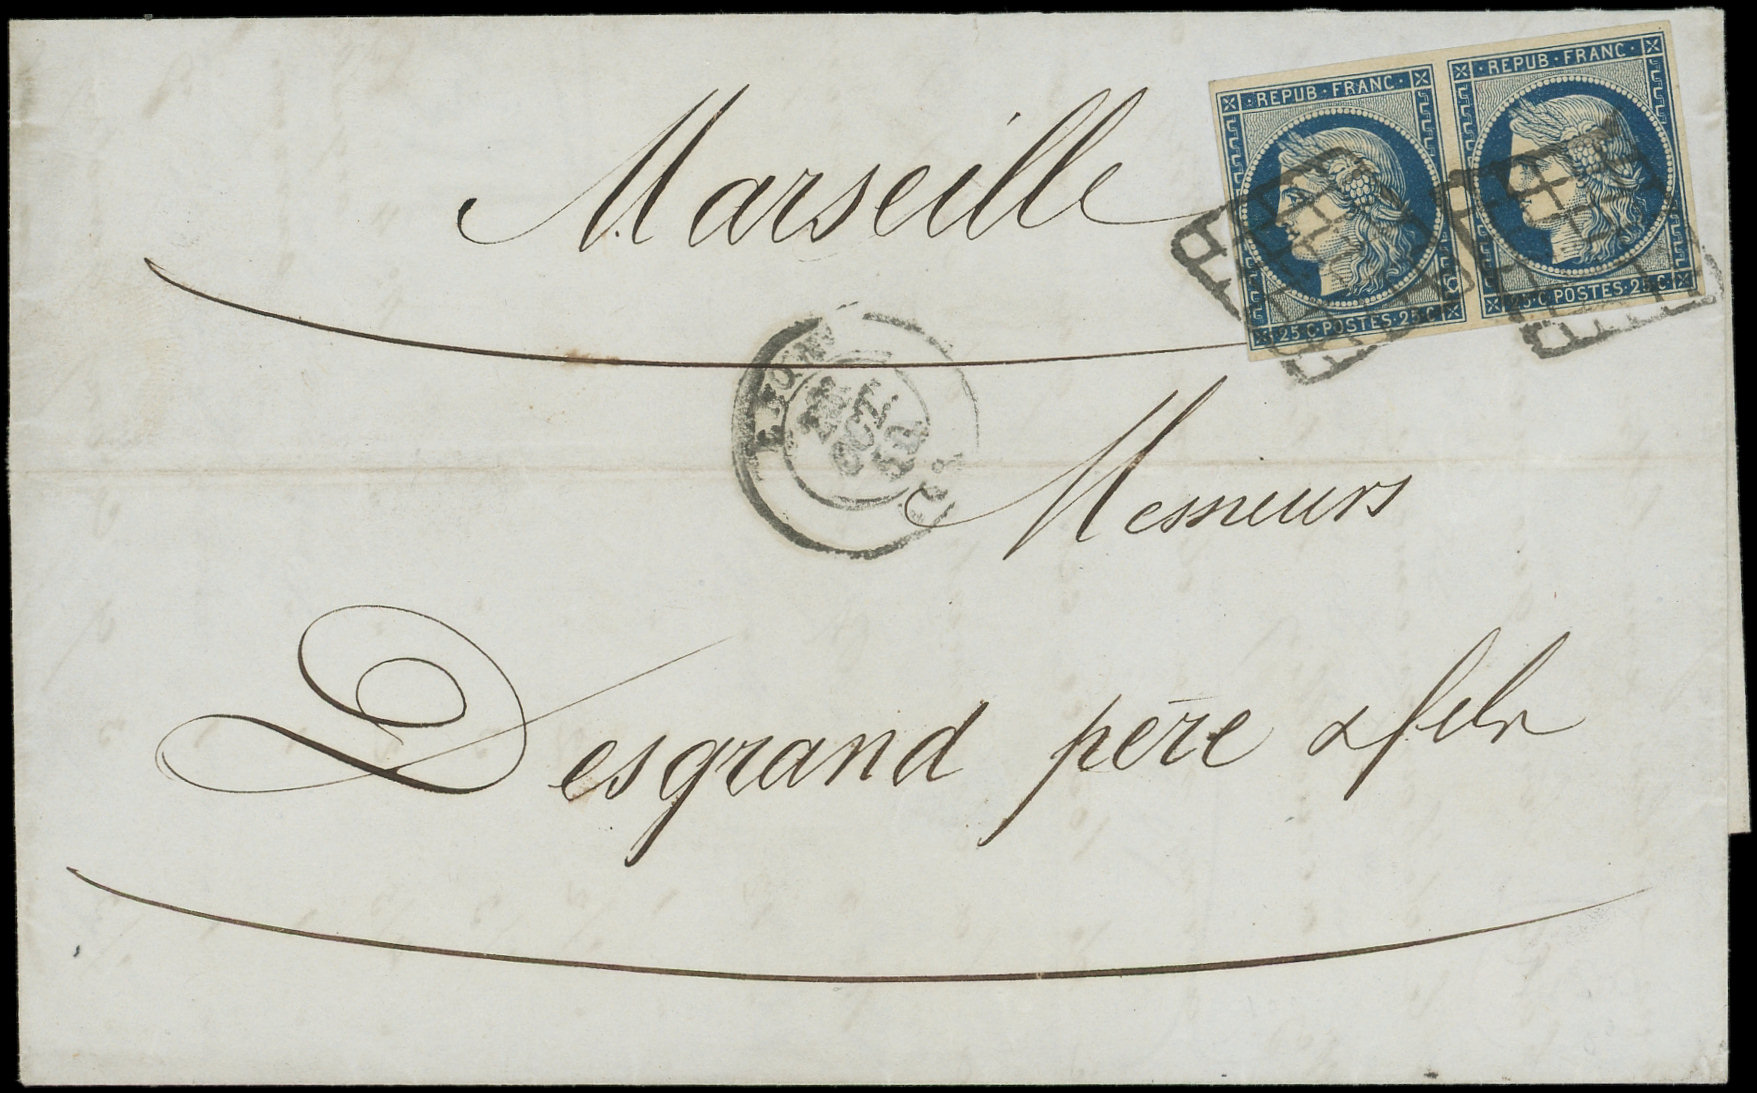 REPUB · FRANC ·
· REPUB · FRANC ·
25 C · POSTES · 25 C
25 C · POSTES · 25 C
Marseille
LYON
OCT.
Messieurs
Desgrand père & fils